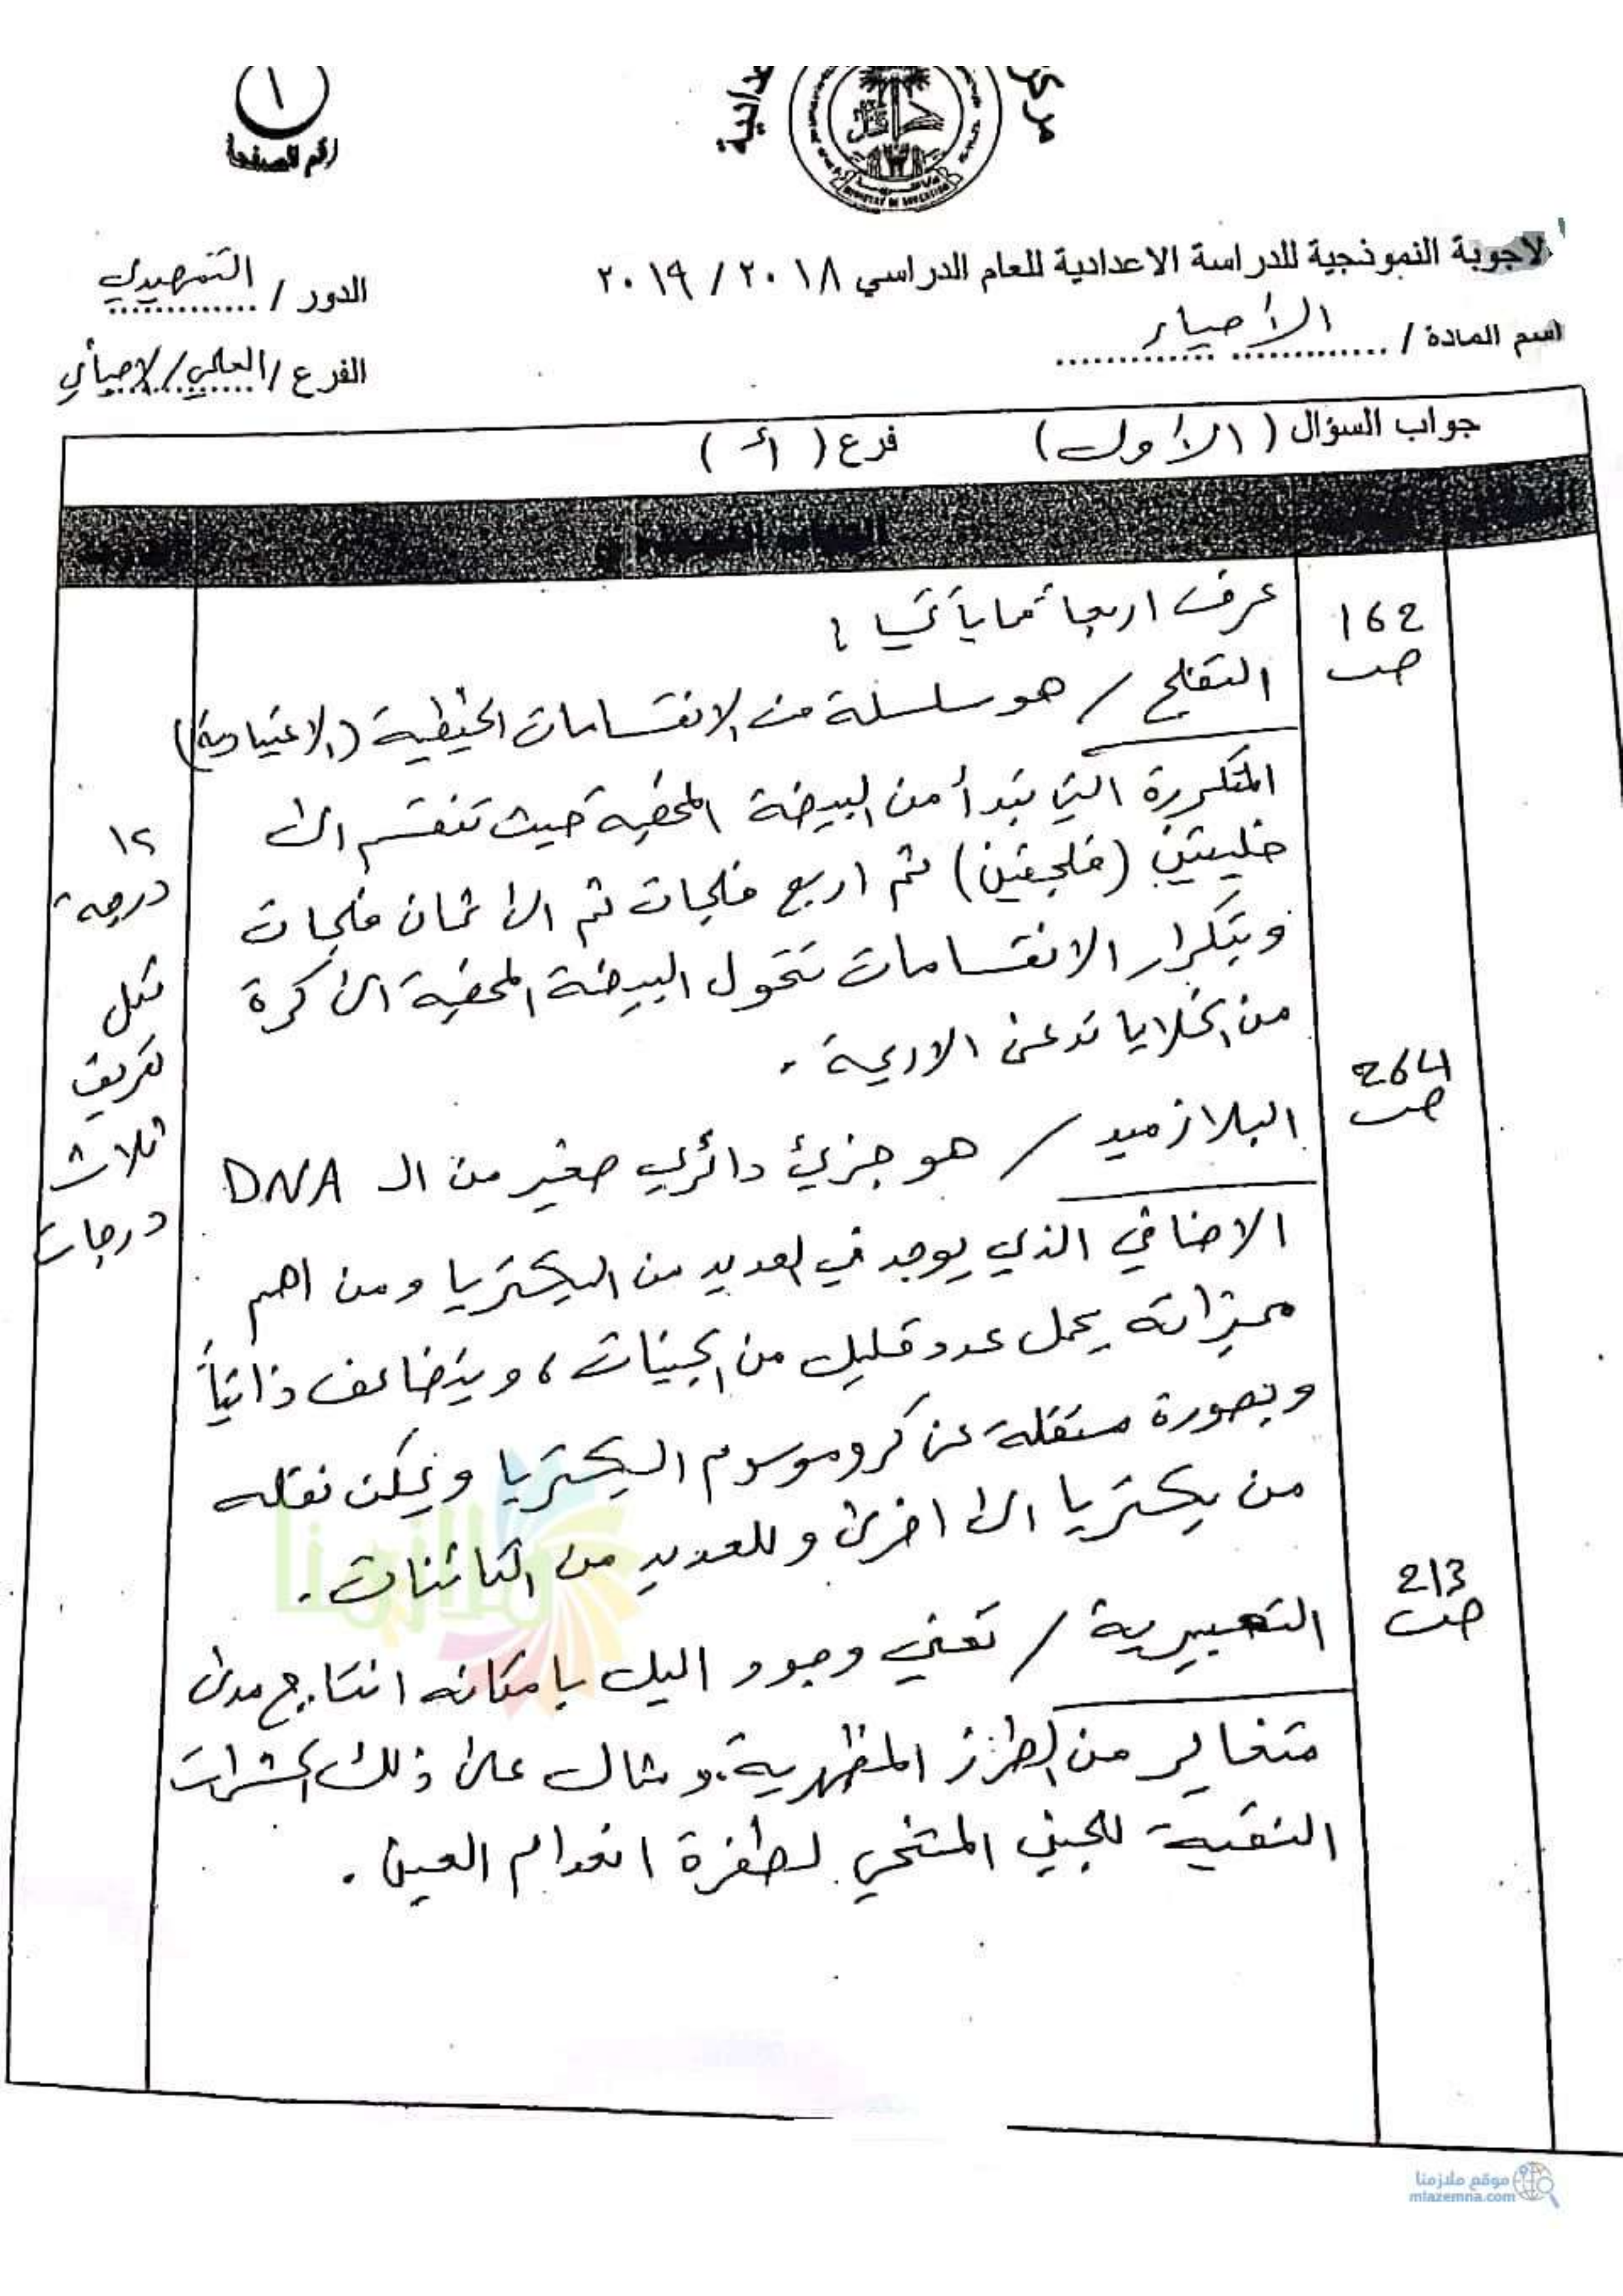 ١
رقم الصفحة
مركز
MINISTRY OF EDUCATION
الاجوبة النموذجية للدراسة الاعدادية للعام الدراسي ٢٠١٨ / ٢٠١٩
الدور / التمهيدي
اسم المادة / الأحياء
الفرع / العلمي / الاحيائي
جواب السؤال ( الأول ) فرع ( أ )
162
ص
عرف اربعا مما يأتي :
التفلج / هو سلسلة من الانقسامات الخيطية (الاعتيادية)
المتكررة التي تبدأ من البيضة المخصبة حيث تنقسم الى
خليتين (فلجتين) ثم اربع فلجات ثم الى ثمان فلجات
وبتكرار الانقسامات تتحول البيضة المخصبة الى كرة
من الخلايا تدعى الاريمة .
264
ص
البلازميد / هو جزيئ دائري صغير من الـ DNA
الاضافي الذي يوجد في العديد من البكتريا ومن اهم
مميزاته يحمل عدد قليل من الجينات ، ويتضاعف ذاتياً
وبصورة مستقلة عن كروموسوم البكتريا ويمكن نقله
من بكتريا الى اخرى وللعديد من الكائنات .
213
ص
التعبيرية / تعني وجود اليل بامكانه انتاج مدى
متغاير من الطرز المظهرية. ومثال على ذلك الحشرات
النقية للجين المتنحي لطفرة انعدام العين .
١٢
درجة
لكل
تعريف
ثلاث
درجات
ملازمنا
موقع ملازمنا
mlazemna.com